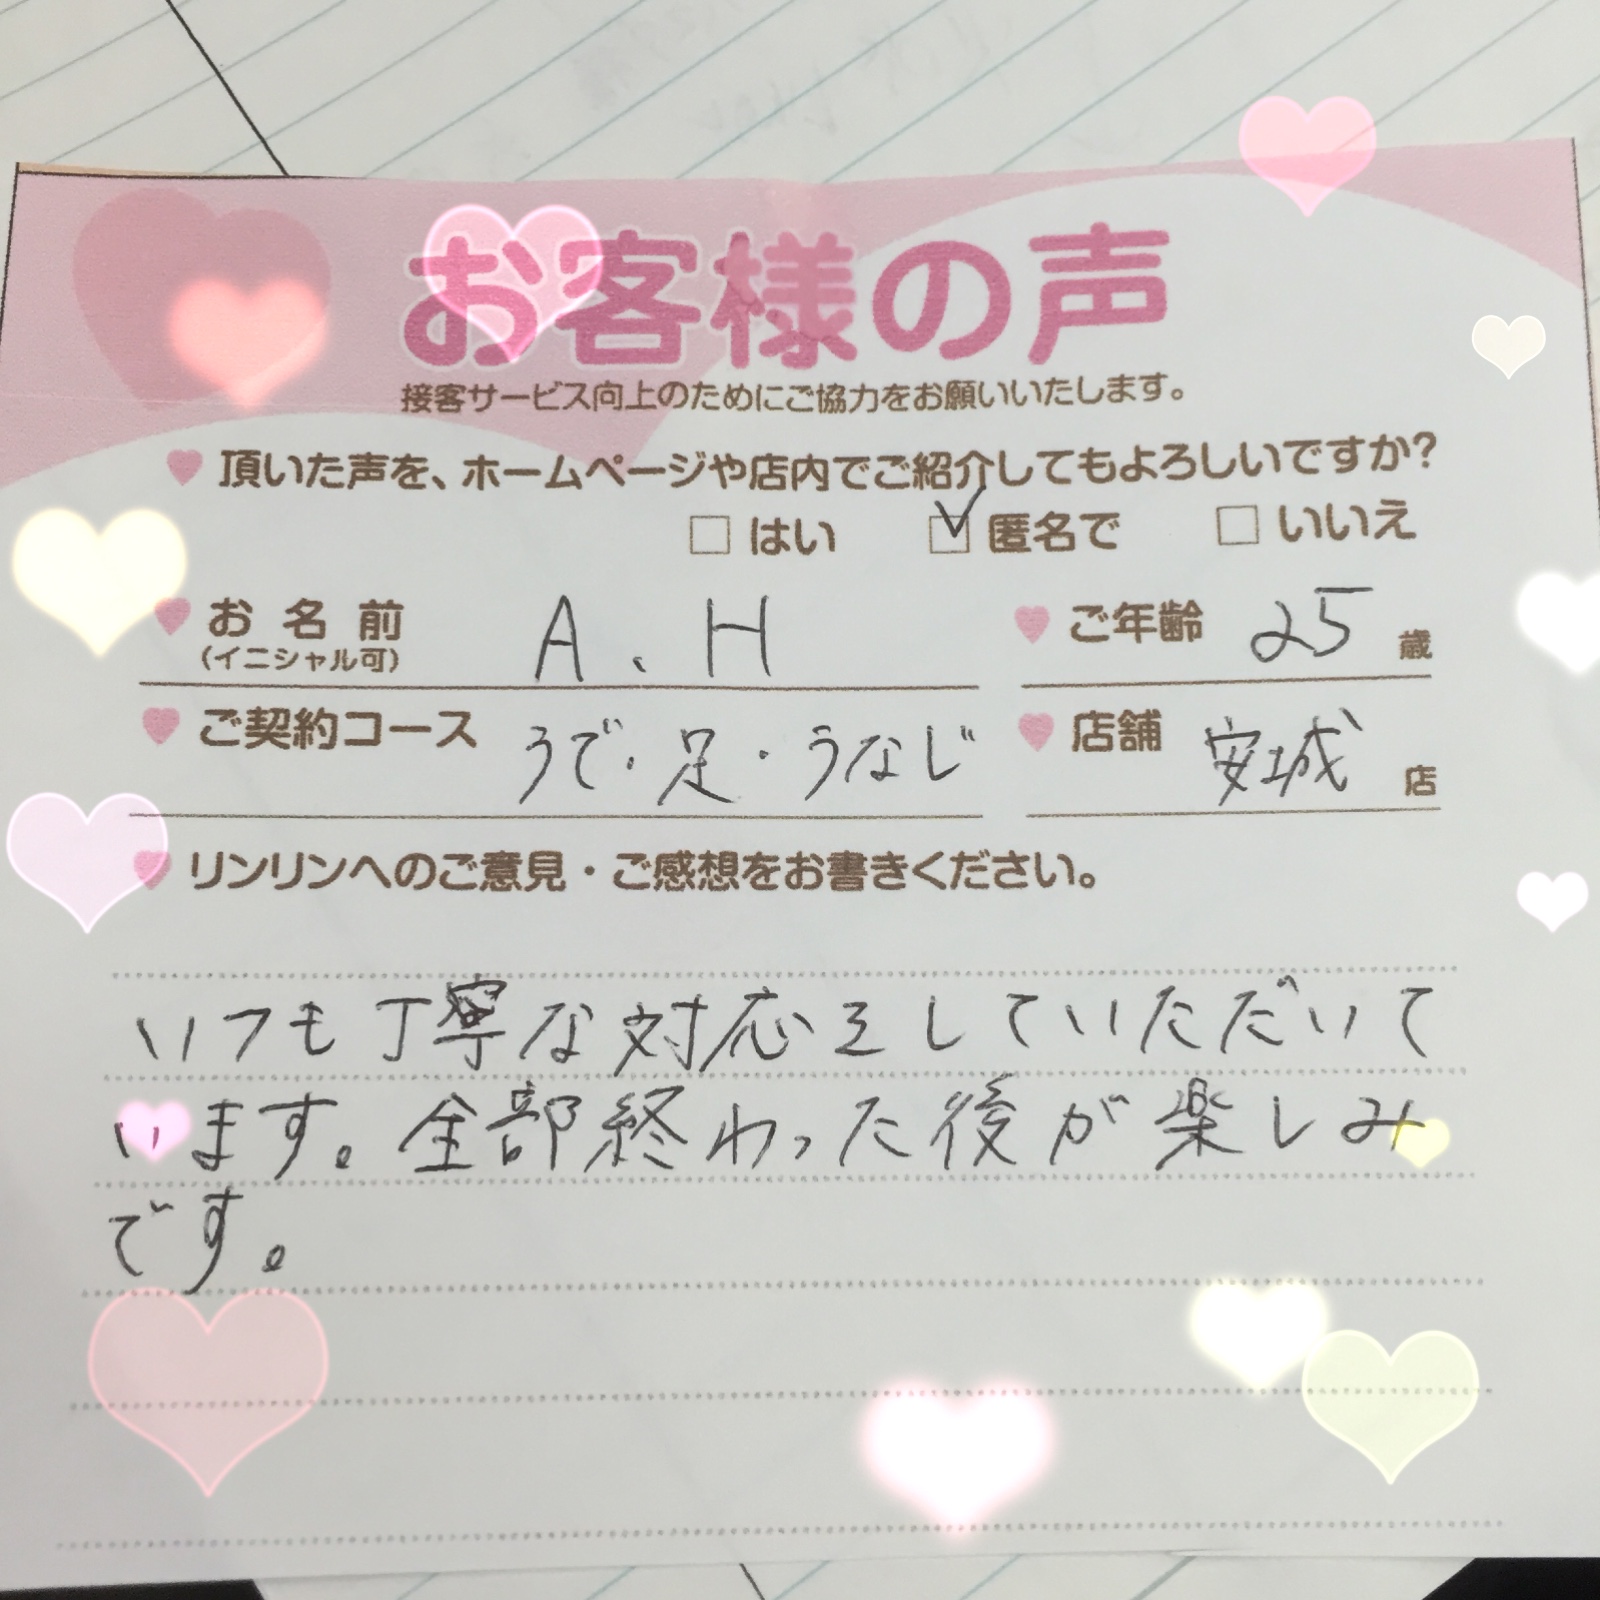 お客様の声
接客サービス向上のためにご協力をお願いいたします。
頂いた声を、ホームページや店内でご紹介してもよろしいですか?
はい 匿名で いいえ
お名前 A、H ご年齢 25 歳
(イニシャル可)
ご契約コース うで・足・うなじ 店舗 安城 店
リンリンへのご意見・ご感想をお書きください。
いつも丁寧な対応をしていただいて
います。全部終わった後が楽しみ
です。